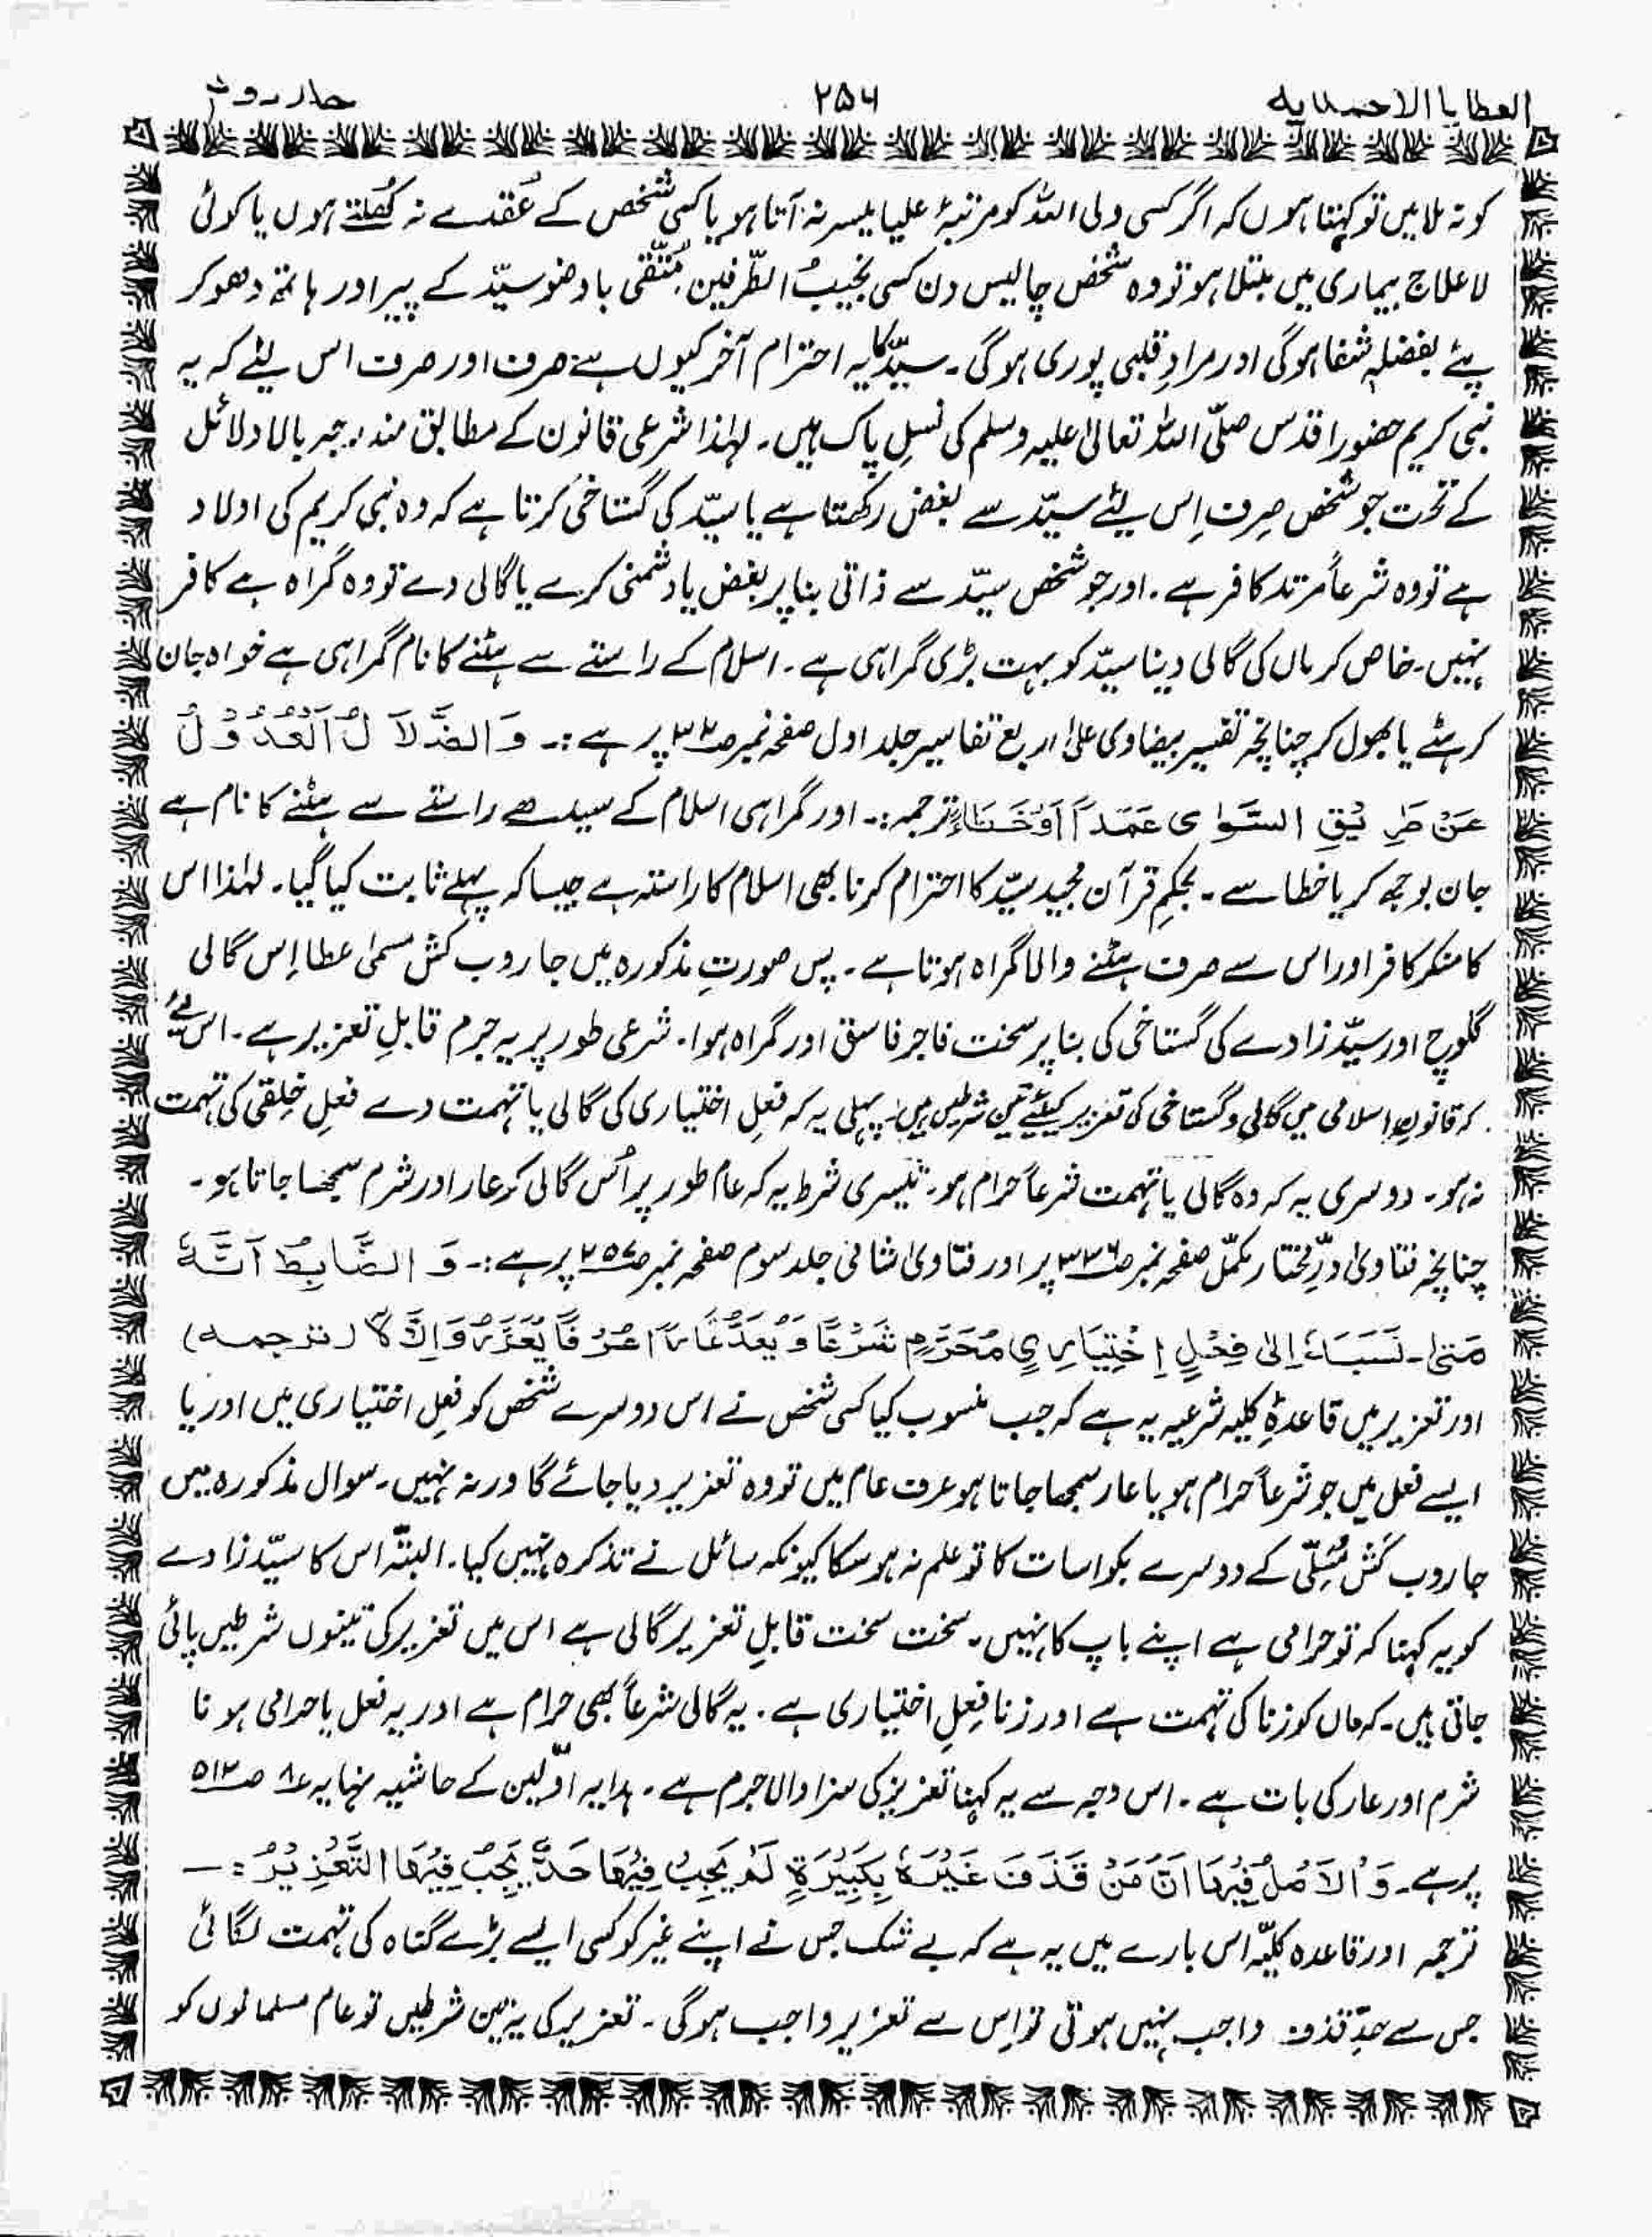 العطایا الاحمدیہ ۲۵۶ جلد دوم
کو نہ ملائیں تو کہتا ہوں کہ اگر کسی ولی اللہ کو مرتبۂ علیا میسر نہ آتا ہو یا کسی شخص کے عُقدے نہ کُھلتے ہوں یا کوئی
لا علاج بیماری میں مبتلا ہو تو وہ شخص چالیس دن کسی نجیبُ الطّرفین مُتّقی باوضو سیّد کے پیر اور ہاتھ دھو کر
پئے بفضلہٖ شفا ہوگی اور مرادِ قلبی پوری ہوگی۔ سیّد کا یہ احترام آخر کیوں ہے صرف اور صرف اس لیئے کہ یہ
نبی کریم حضور اقدس صلّی اللہ تعالیٰ علیہ وسلم کی نسلِ پاک ہیں۔ لہٰذا شرعی قانون کے مطابق مندرجہ بالا دلائل
کے تحت جو شخص صِرف اِس لیئے سیّد سے بغض رکھتا ہے یا سیّد کی گستاخی کرتا ہے کہ وہ نبی کریم کی اولاد
ہے تو وہ شرعاً مرتد کافر ہے۔ اور جو شخص سیّد سے ذاتی بنا پر بغض یا دشمنی کرے یا گالی دے تو وہ گمراہ ہے کافر
نہیں۔ خاص کر ماں کی گالی دینا سیّد کو بہت بڑی گمراہی ہے۔ اسلام کے راستے سے ہٹنے کا نام گمراہی ہے خواہ جان
کر ہٹے یا بھول کر چنانچہ تفسیر بیضاوی علیٰ اربع تفاسیر جلد اول صفحہ نمبر صـ۳۲ پر ہے:۔ وَالضَّلَالُ اَلْعُدُوْلُ
عَنْ طَرِيْقِ السَّوَاىِ عَمَدًا اَوْخَطَاءً ترجمہ:۔ اور گمراہی اسلام کے سیدھے راستے سے ہٹنے کا نام ہے
جان بوجھ کر یا خطا سے۔ بحکمِ قرآن مجید سیّد کا احترام کرنا بھی اسلام کا راستہ ہے جیسا کہ پہلے ثابت کیا گیا۔ لہٰذا اس
کا منکر کافر اور اس سے صرف ہٹنے والا گمراہ ہوتا ہے۔ پس صورتِ مذکورہ میں جاروب کش مسمیٰ عطا اِس گالی
گلوچ اور سیّد زادے کی گستاخی کی بنا پر سخت فاجر فاسق اور گمراہ ہوا۔ شرعی طور پر یہ جرم قابلِ تعزیر ہے۔ اس لیئے
کہ قانونِ اسلامی میں گالی و گستاخی کی تعزیر کیلئے تین شرطیں ہیں۔ پہلی یہ کہ فعلِ اختیاری کی گالی یا تہمت دے فعلِ خِلقی کی تہمت
نہ ہو۔ دوسری یہ کہ وہ گالی یا تہمت شرعاً حرام ہو۔ تیسری شرط یہ کہ عام طور پر اُس گالی کو عار اور شرم سمجھا جاتا ہو۔
چنانچہ فتاویٰ درّمختار مکمّل صفحہ نمبر صـ۳۳۶ پر اور فتاویٰ شافی جلد سوم صفحہ نمبر صـ۲۵۷ پر ہے:۔ وَالضَّابِطُ اَنَّهٗ
مَتىٰ۔ نَسَبَهٗ اِلىٰ فِعْلٍ اِخْتِيَارِىٍ مُحَرَّمٍ شَرْعًا وَيُعَدُّ عَارًا عُرْفًا يُعَزَّرُ وَاِلَّا لَا (ترجمہ)
اور تعزیر میں قاعدۂ کلیہ شرعیہ یہ ہے کہ جب منسوب کیا کسی شخص نے اس دوسرے شخص کو فعلِ اختیاری میں اور یا
ایسے فعل میں جو شرعاً حرام ہو یا عار سمجھا جاتا ہو عرف عام میں تو وہ تعزیر دیا جائے گا ورنہ نہیں۔ سوال مذکورہ میں
جاروب کَش مُسَلّی کے دوسرے بکواسات کا تو علم نہ ہو سکا کیونکہ سائل نے تذکرہ نہیں کیا۔ البتّہ اس کا سیّد زادے
کو یہ کہنا کہ تو حرامی ہے اپنے باپ کا نہیں۔ سخت سخت قابلِ تعزیر گالی ہے اس میں تعزیر کی تینوں شرطیں پائی
جاتی ہیں۔ کہ ماں کو زنا کی تہمت ہے اور زنا فِعلِ اختیاری ہے۔ یہ گالی شرعاً بھی حرام ہے اور یہ فعل یا حرامی ہونا
شرم اور عار کی بات ہے۔ اس وجہ سے یہ کہنا تعزیر کی سزا والا جرم ہے۔ ہدایہ اوّلین کے حاشیہ نہایہ ۸؎ صـ۵۱۲
پر ہے۔ وَالْاَصْلُ فِيْهَا اَنَّ مَنْ قَذَفَ غَيْرَهٗ بِكَبِيْرَةٍ لَمْ يَجِبْ فِيْهَا حَدٌّ يَجِبُ فِيْهَا التَّعْزِيْرُ :۔
ترجمہ اور قاعدہ کلیّہ اس بارے میں یہ ہے کہ بے شک جس نے اپنے غیر کو کسی ایسے بڑے گناہ کی تہمت لگائی
جس سے حدِّ قذف واجب نہیں ہوتی تو اِس سے تعزیر واجب ہوگی۔ تعزیر کی یہ تین شرطیں تو عام مسلمانوں کو